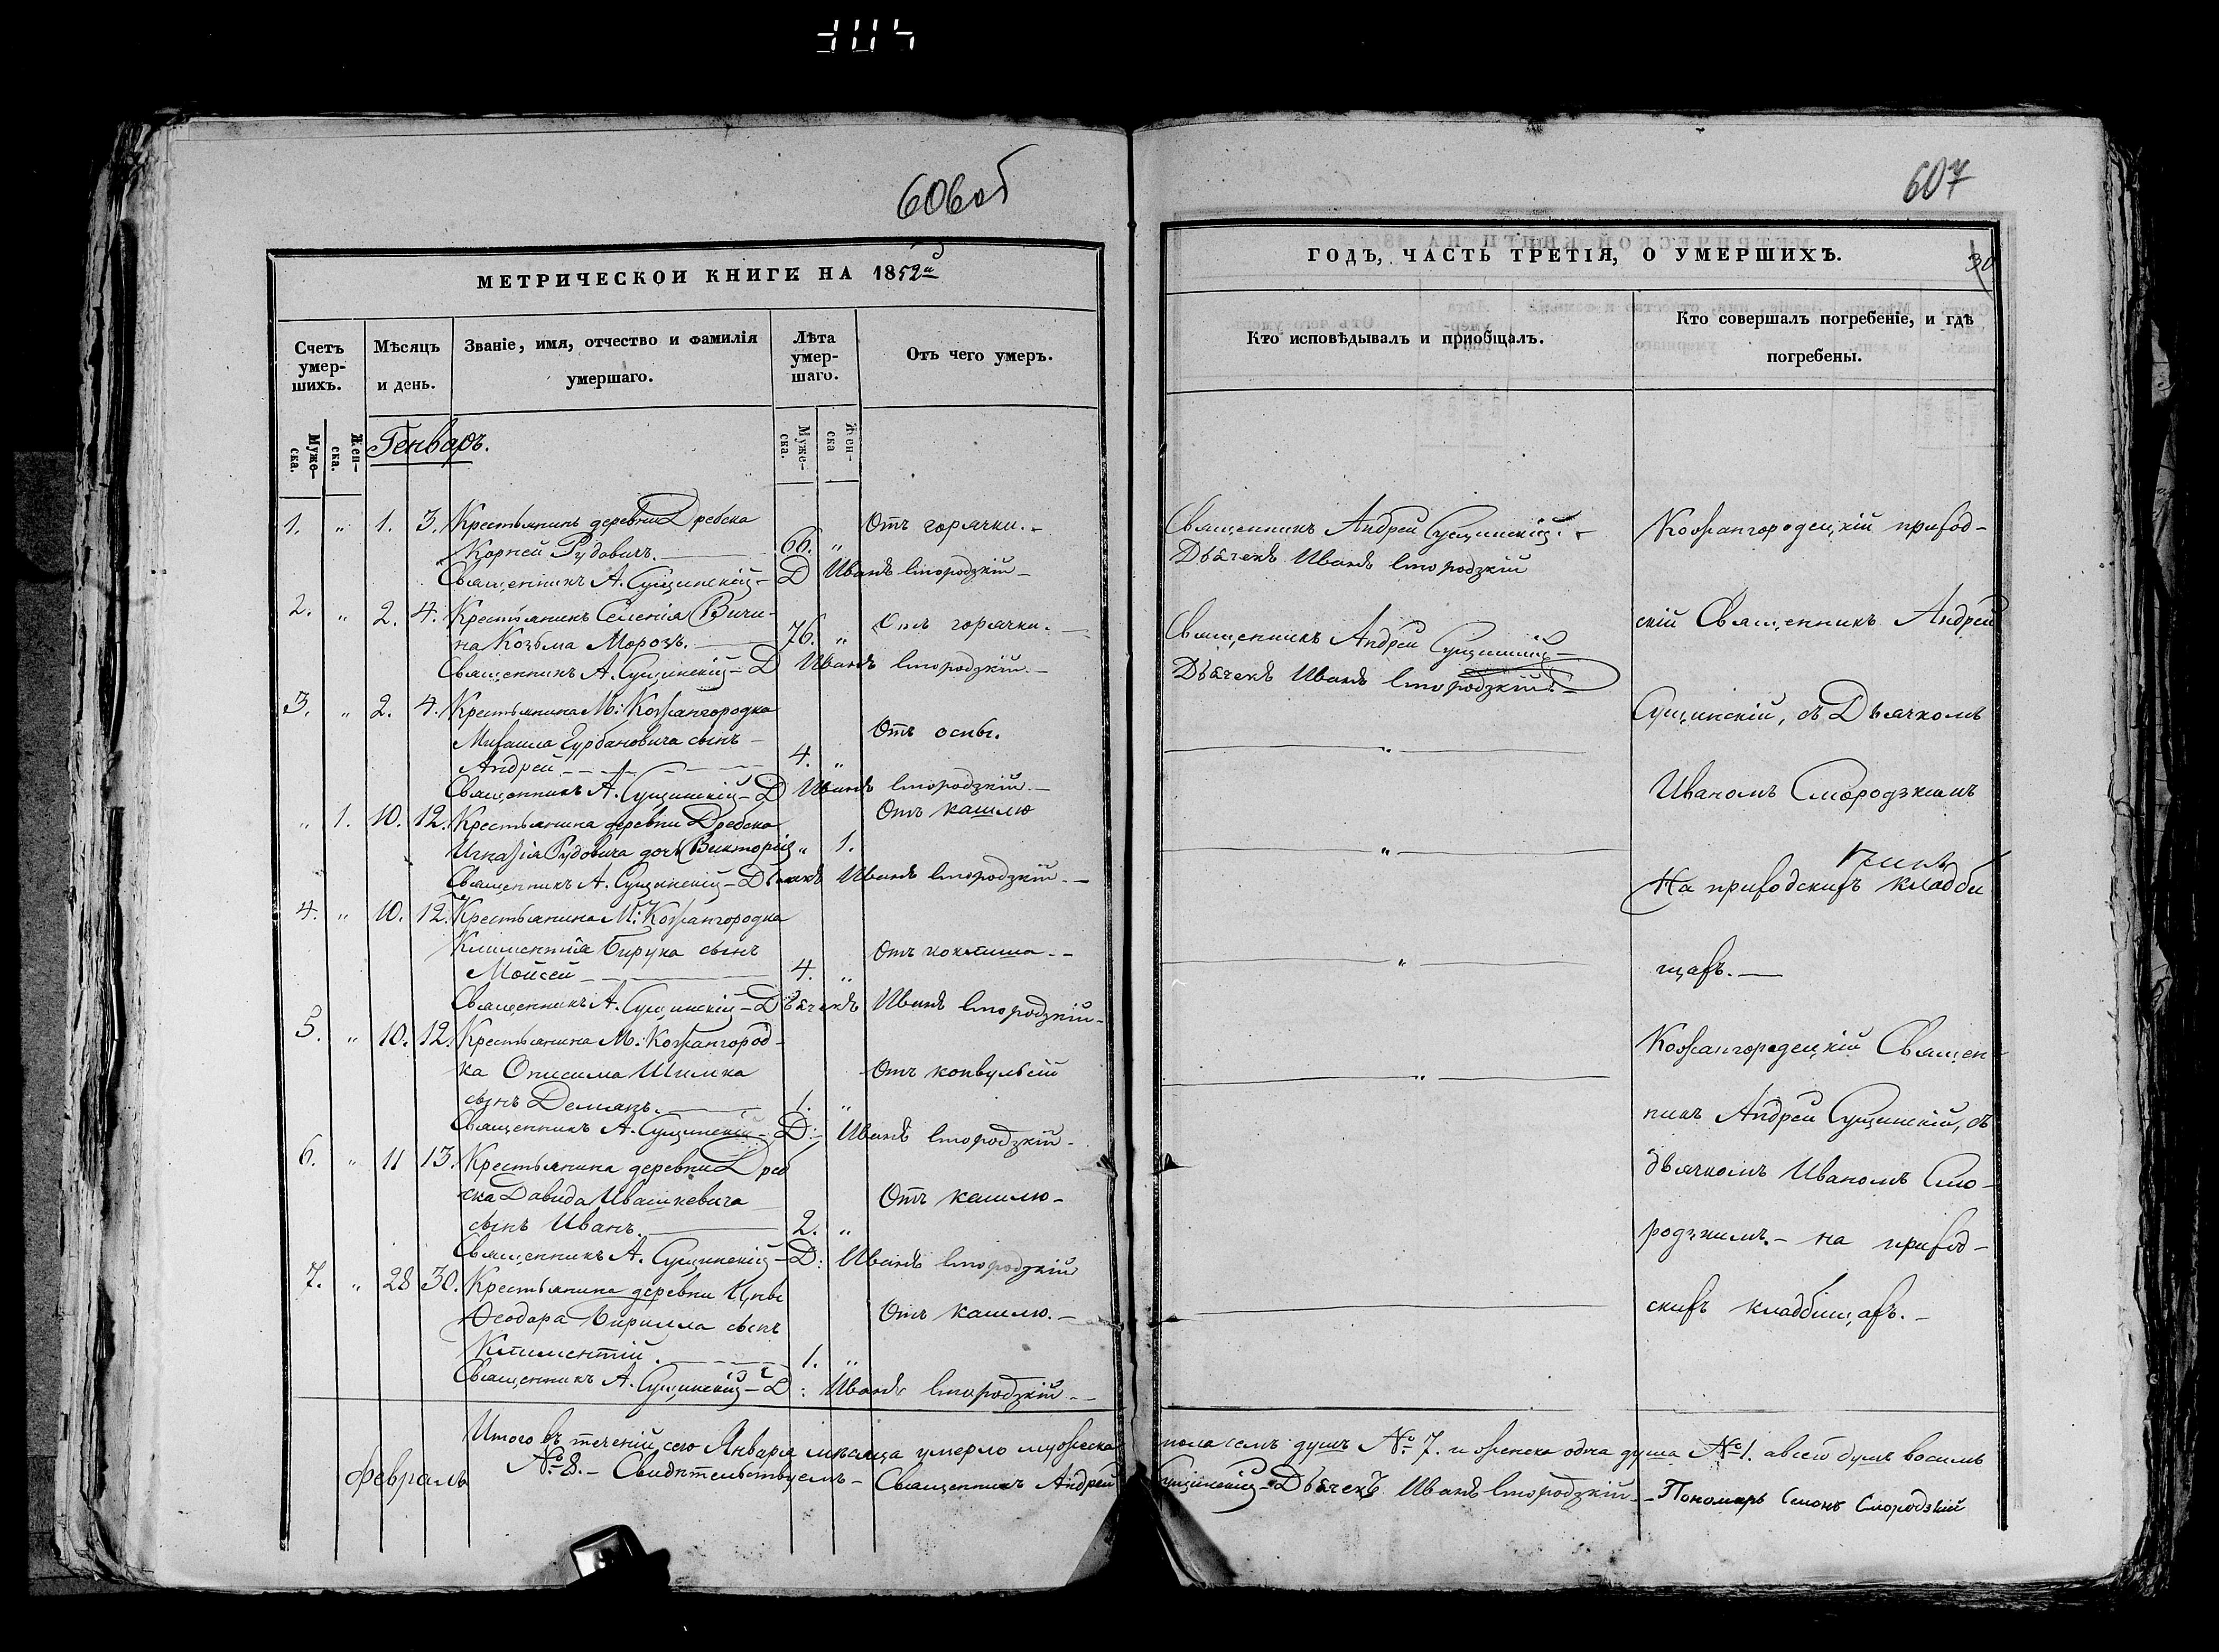 606об
МЕТРИЧЕСКОЙ КНИГИ НА 1852й
Счетъ умер-шихъ.
Мѣсяцъ и день.
Званіе, имя, отчество и фамилія умершаго.
Лѣта умер-шаго.
Отъ чего умеръ.
Муже-ска.
Жен-ска.
Муже-ска.
Жен-ска
Генварь.
1. „ 1. 3. Крестьянинъ деревни Дребска
Корней Рудовичъ. 66. „ Отъ горячки.
Священникъ А. Сущинскій Д Иванъ Смородзкій
2. „ 2. 4. Крестьянинъ Селенія Вичи-
на Козьма Морозъ. 76. „ Отъ горячки.
Священникъ А. Сущинскій Д Иванъ Смородзкій
3. „ 2. 4. Крестьянина М: Кожангородка
Михаила Гурбановича сынъ
Андрей 4. „ Отъ оспы.
Священникъ А. Сущинскій Д Иванъ Смородзкій
„ 1. 10. 12. Крестьянина деревни Дребска Отъ кашлю
Игнатія Рудовича дочь Викторія „ 1.
Священникъ А. Сущинскій Дьячекъ Иванъ Смородзкій
4. „ 10. 12. Крестьянина М: Кожангородка
Климентія Бирука сынъ
Мойсей 4. „ Отъ коклюша.
Священникъ А. Сущинскій Дьячекъ Иванъ Смородзкій
5. „ 10. 12. Крестьянина М: Кожангород-
ка Онисима Шимка Отъ конвульсій
сынъ Демянъ. 1. „
Священникъ А. Сущинскій Д: Иванъ Смородзкій
6. „ 11 13. Крестьянина деревни Дреб
ска Давида Ивашкевича Отъ кашлю
сынъ Иванъ. 2. „
Священникъ А. Сущинскій Д: Иванъ Смородзкій
7. „ 28 30. Крестьянина деревни Цны
Ѳеодора Кирилла сынъ Отъ кашлю.
Климентій. 1. „
Священникъ А. Сущинскій Д: Иванъ Смородзкій
Итого въ теченій сего Января мѣсяца умерло мужеска
№ 8. Свидѣтельствуемъ Священникъ Андрей
Февраль
607
ГОДЪ, ЧАСТЬ ТРЕТІЯ, О УМЕРШИХЪ.
30
Кто исповѣдывалъ и пріобщалъ.
Кто совершалъ погребеніе, и гдѣ погребены.
Священникъ Андрей Сущинскій.
Дьячекъ Иванъ Смородзкій
Священникъ Андрей Сущинскій
Дьячекъ Иванъ Смородзкій
Кожангородецкій приход-
скій Священникъ Андрей
Сущинскій, съ Дьячкомъ
Иваномъ Смородзкимъ
На приходскихъ кладби
щахъ.
Кожангородецкій Священ
никъ Андрей Сущинскій, съ
дьячкомъ Иваномъ Смо-
родзкимъ. на приход-
скихъ кладбищахъ.
пола семь душъ № 7. и женска одна душа № 1. а всего душъ восемь
Сущинскій Дьячекъ Иванъ Смородзкій Пономарь Симонъ Смородзкій